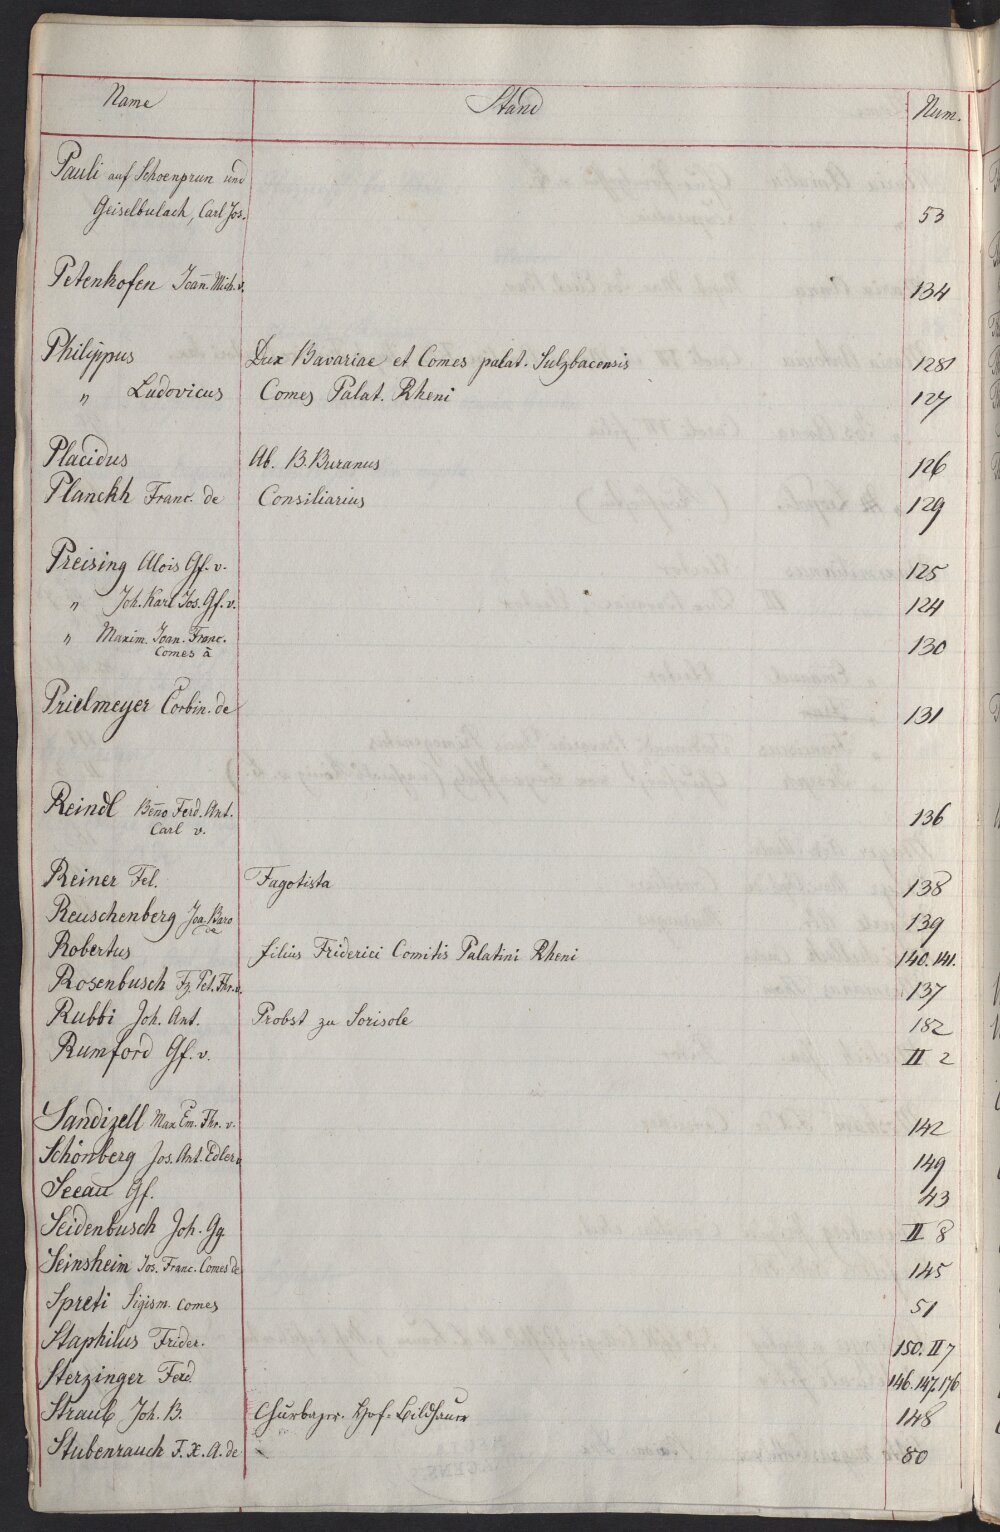 Name Stand Num.
Pauli auf Schoenprun und
Geiselbulach, Carl Jos. 53
Petenkofen Joan̄. Mich. v. 134
Philippus Dux Bavariae et Comes palat. Sulzbacensis 128
" Ludovicus Comes Palat. Rheni 127
Placidus Ab. B. Buranus 126
Planckh Franc. de Consiliarius 129
Preising Alois Gf. v. 125
" Joh. Karl Jos. Gf. v. 124
" Maxim. Joan. Franc. 130
Comes à
Prielmeyer Corbin. de 131
Reindl Beno Ferd. Ant. 136
Carl v.
Reiner Fel. Fagotista 138
Reuschenberg Joa. Baro 139
de
Robertus filius Friderici Comitis Palatini Rheni 140. 141.
Rosenbusch Fz. Pet. Fhr. v. 137
Rubbi Joh. Ant. Probst zu Sorisole 182
Rumford Gf. v. II 2
Sandizell Max Em. Fhr. v. 142
Schönberg Jos. Ant. Edler v 149
Seeau Gf. 43
Seidenbusch Joh. Gg. II 8
Seinsheim Jos. Franc. Comes de 145
Spreti Sigism. comes 51
Staphilus Frider. 150. II 7
Sterzinger Ferd. 146. 147. 176
Straub Joh. B. Churbayr. Hof-Bildhauer 148
Stubenrauch F. X. A. de 80